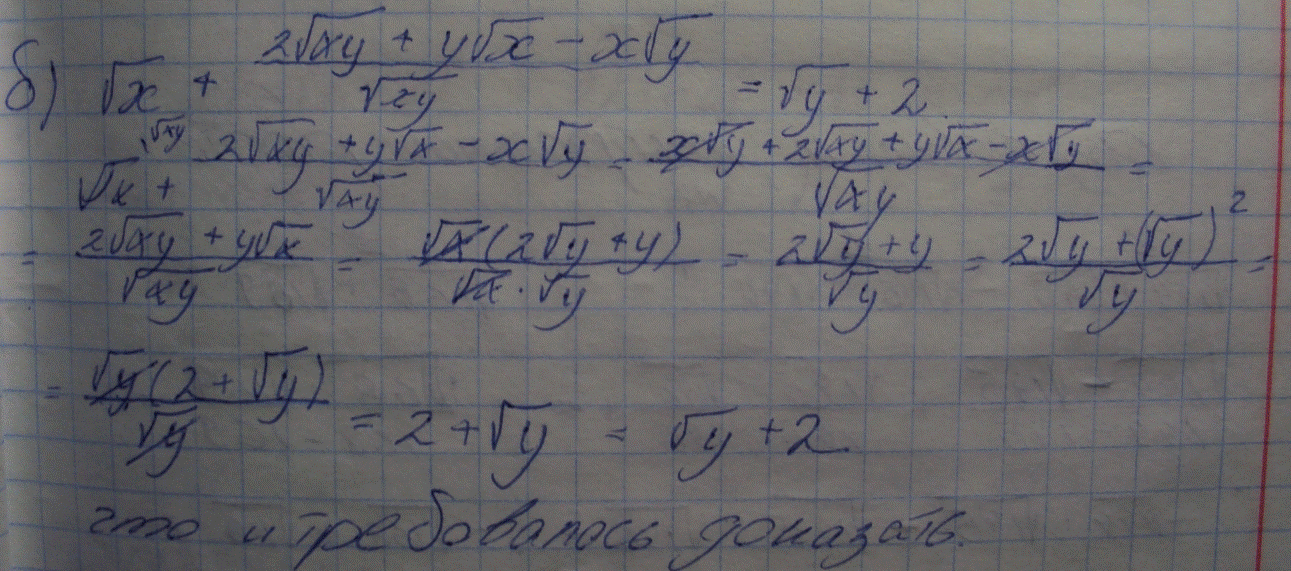 б) √x + (2√xy + y√x − x√y)/√xy = √y + 2.
√x^(√xy) + (2√xy + y√x − x√y)/√xy = (x√y + 2√xy + y√x − x√y)/√xy =
= (2√xy + y√x)/√xy = (√x(2√y + y))/(√x · √y) = (2√y + y)/√y = (2√y + (√y)²)/√y =
= (√y(2 + √y))/√y = 2 + √y = √y + 2.
что и требовалось доказать.